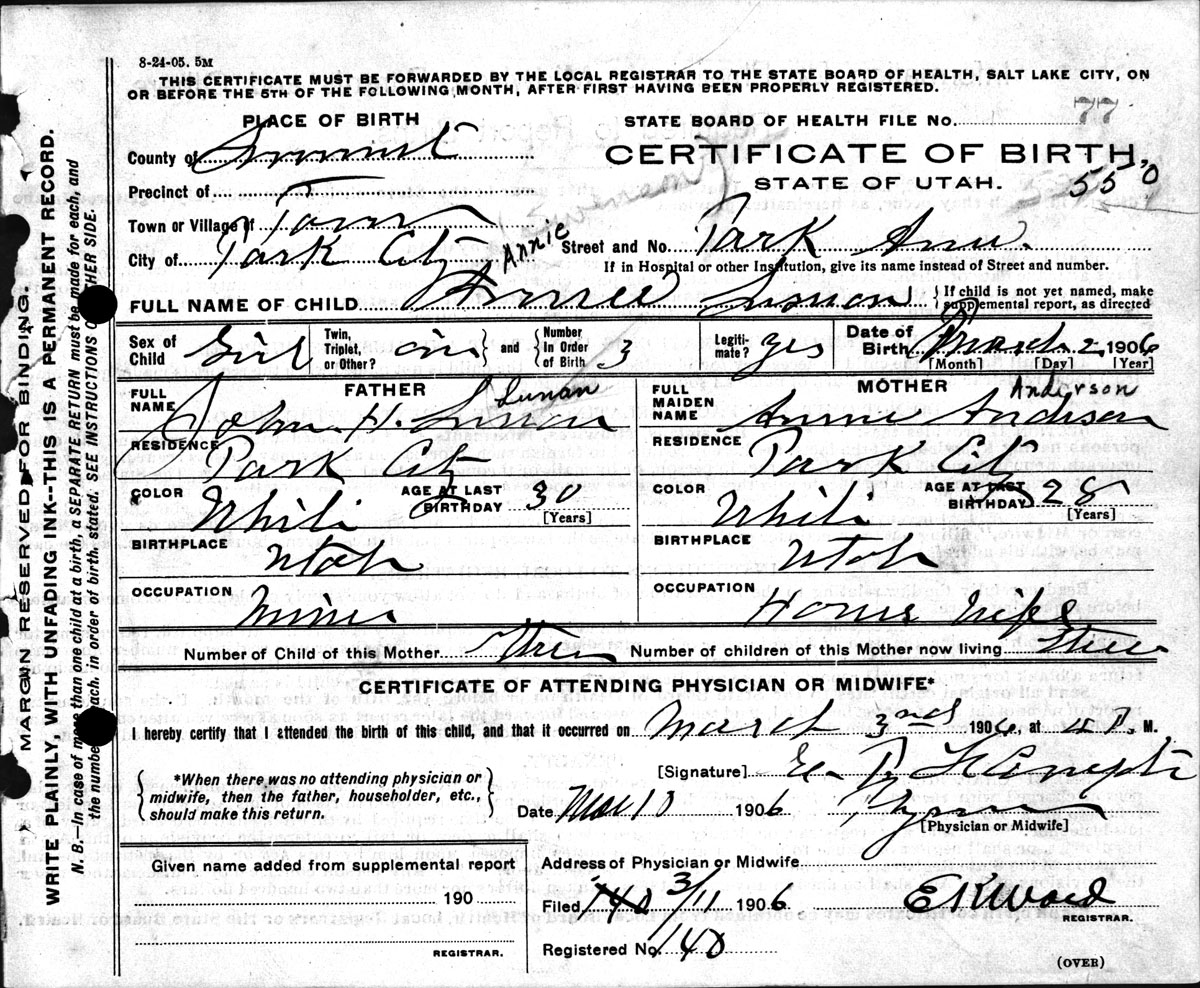 8-24-05. 5M
THIS CERTIFICATE MUST BE FORWARDED BY THE LOCAL REGISTRAR TO THE STATE BOARD OF HEALTH, SALT LAKE CITY, ON
OR BEFORE THE 5TH OF THE FOLLOWING MONTH, AFTER FIRST HAVING BEEN PROPERLY REGISTERED.
PLACE OF BIRTH
STATE BOARD OF HEALTH FILE NO. 77
County of Summit
CERTIFICATE OF BIRTH,
STATE OF UTAH. 550
Precinct of
Town or Village of
City of Park City Street and No. Park Ave.
If in Hospital or other Institution, give its name instead of Street and number.
Annie
FULL NAME OF CHILD
If child is not yet named, make supplemental report, as directed
Sex of Child Girl Twin, Triplet, or Other? and Number In Order of Birth 3 Legitimate? yes Date of Birth March 2 1906
[Month] [Day] [Year]
FATHER
FULL NAME John H. Lunan
RESIDENCE Park City
COLOR White AGE AT LAST BIRTHDAY 30
[Years]
BIRTHPLACE Utah
OCCUPATION Miner
MOTHER
FULL MAIDEN NAME Annie Anderson
RESIDENCE Park City
COLOR White AGE AT LAST BIRTHDAY 28
[Years]
BIRTHPLACE Utah
OCCUPATION House Wife
Number of Child of this Mother Three Number of children of this Mother now living Three
CERTIFICATE OF ATTENDING PHYSICIAN OR MIDWIFE*
I hereby certify that I attended the birth of this child, and that it occurred on March 3rd 1906, at 4 P. M.
*When there was no attending physician or midwife, then the father, householder, etc., should make this return.
[Signature] E. P.
Date Mar 10 1906
[Physician or Midwife]
Given name added from supplemental report
190
REGISTRAR.
Address of Physician or Midwife
Filed 140 3/11 1906
REGISTRAR.
Registered No. 140
(OVER)
MARGIN RESERVED FOR BINDING.
WRITE PLAINLY, WITH UNFADING INK--THIS IS A PERMANENT RECORD.
N. B.—In case of more than one child at a birth, a SEPARATE RETURN must be made for each, and
the number each, in order of birth, stated. SEE INSTRUCTIONS OTHER SIDE.